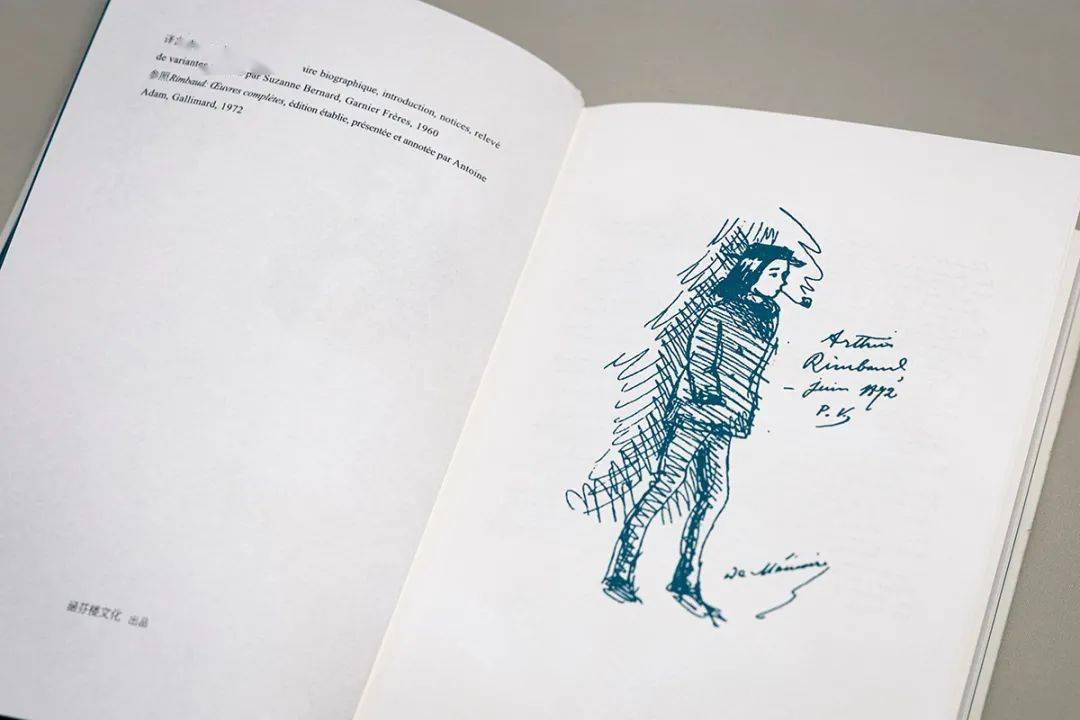 译自
aire biographique, introduction, notices, relevé
de variantes par Suzanne Bernard, Garnier Frères, 1960
参照Rimbaud: Œuvres complètes, édition établie, présentée et annotée par Antoine
Adam, Gallimard, 1972
涵芬楼文化 出品
Arthur
Rimbaud
– juin 1872
P. V.
De Mémoire